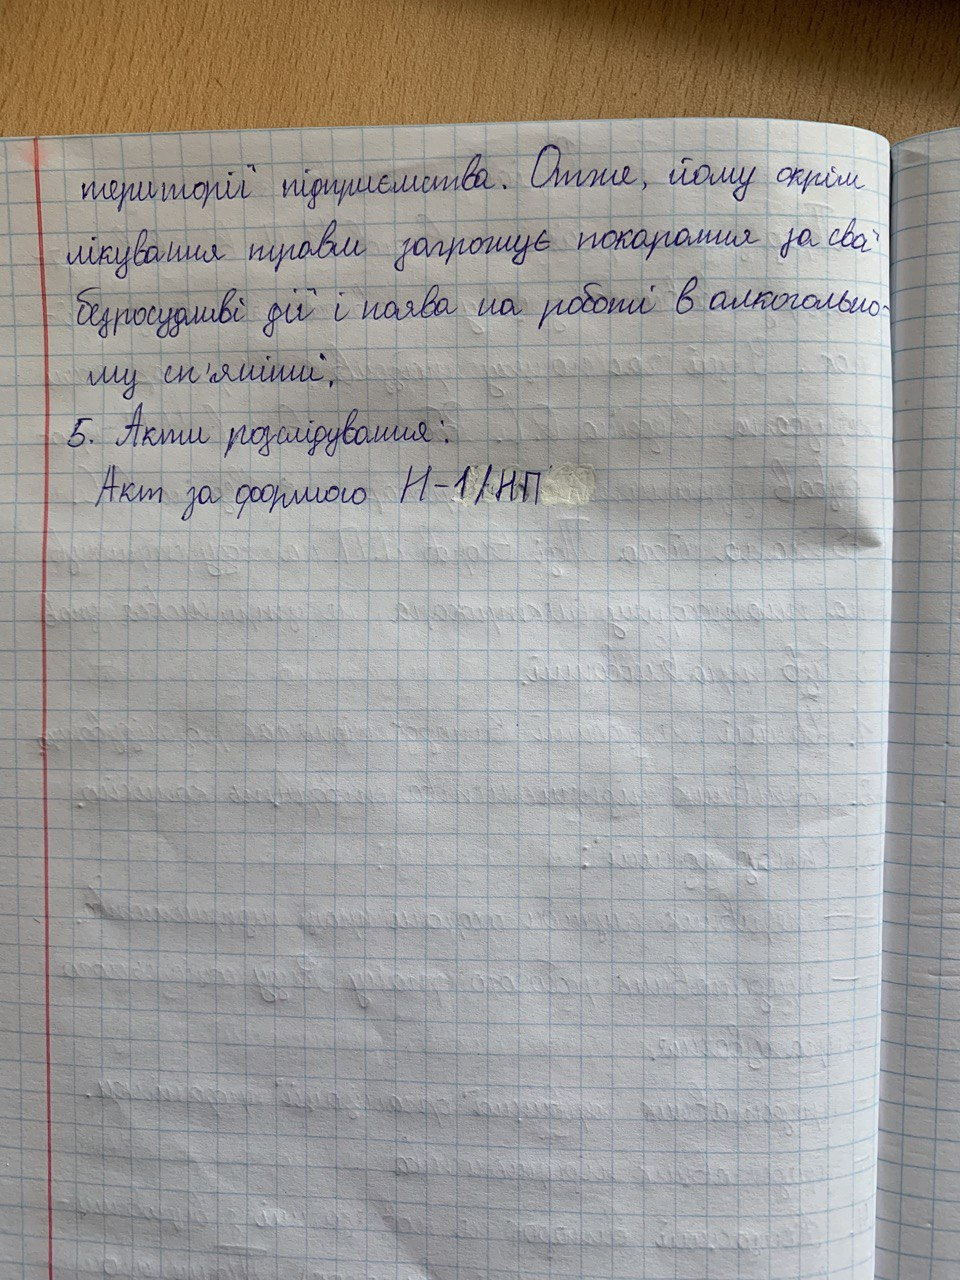 території підприємства. Отже, йому окрім
лікування травм загрожує покарання за свої
безросудливі дії і поява на роботі в алкогольно-
му сп'янінні.
5. Акти розслідування:
Акт за формою Н-1/НП